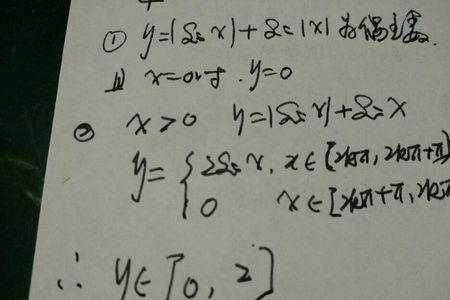 ① y=|Sin x|+Sin|x|为偶函数.
(1) x=0时. y=0
② x>0 y=|Sin x|+Sin x
y={2Sin x, x∈[2kπ, 2kπ+π]
0 x∈[2kπ+π, 2kπ
∴ y∈[0, 2]